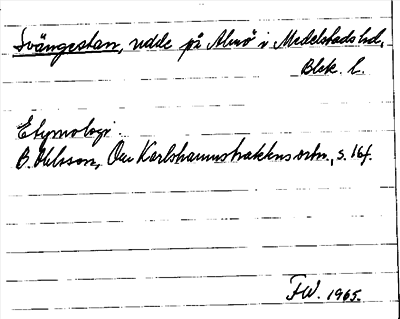 Svängestan, udde på Almö i Medelstads hd,
Blek. l.
Etymologi.
B. Ohlsson, Om Karlshamnstraktens ortn., s. 164.
FW. 1965.